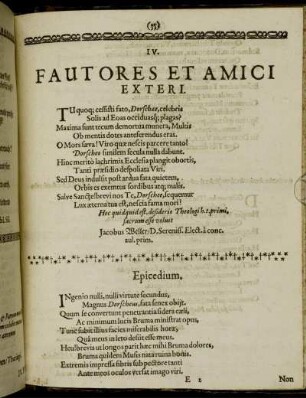 (33)
IV.
FAUTORES ET AMICI
EXTERI.
TU quoq; cessisti fato, Dorscheë, celebris
Solis ad Eoas occiduasq; plagas?
Maxima sunt tecum demortua munera, Multis
Ob mentis dotes anteferendus eras.
O Mors sæva! Viro quæ nescis parcere tanto!
Dorscheo similem secula nulla dabunt.
Hinc meritò lachrimis Ecclesia plangit obortis,
Tanti præsidio despoliata Viri.
Sed Deus indulsit post ardua fata quietem,
Orbis es exemtus sordibus atq; malis.
Salve Sancte! brevi nos Te, Dorschee, sequemur
Lux æterna tua est, nescia fama mori!
Hoc quidquid est, desiderio Theologi h.t. primi,
sacrum esse voluit
Jacobus Weller/ D. Sereniss. Elect. à conc.
aul. prim.
Epicedium,
INgenio nulli, nulli virtute secundus,
Magnus Dorscheus, fata senex obiit.
Quum se convertunt penetrantia sidera cæli,
Ac minimum lucis Bruma ministrat opus,
Tunc subit illius facies miserabilis hora,
Quâ meus in leto desiit esse meus.
Heu brevia ut longos parit hæc mihi Bruma dolores,
Bruma quidem Musis nata ruina bonis.
Extremis impressa fibris sub pectore tanti
Ante meos oculos versat imago viri.
E 1
Non